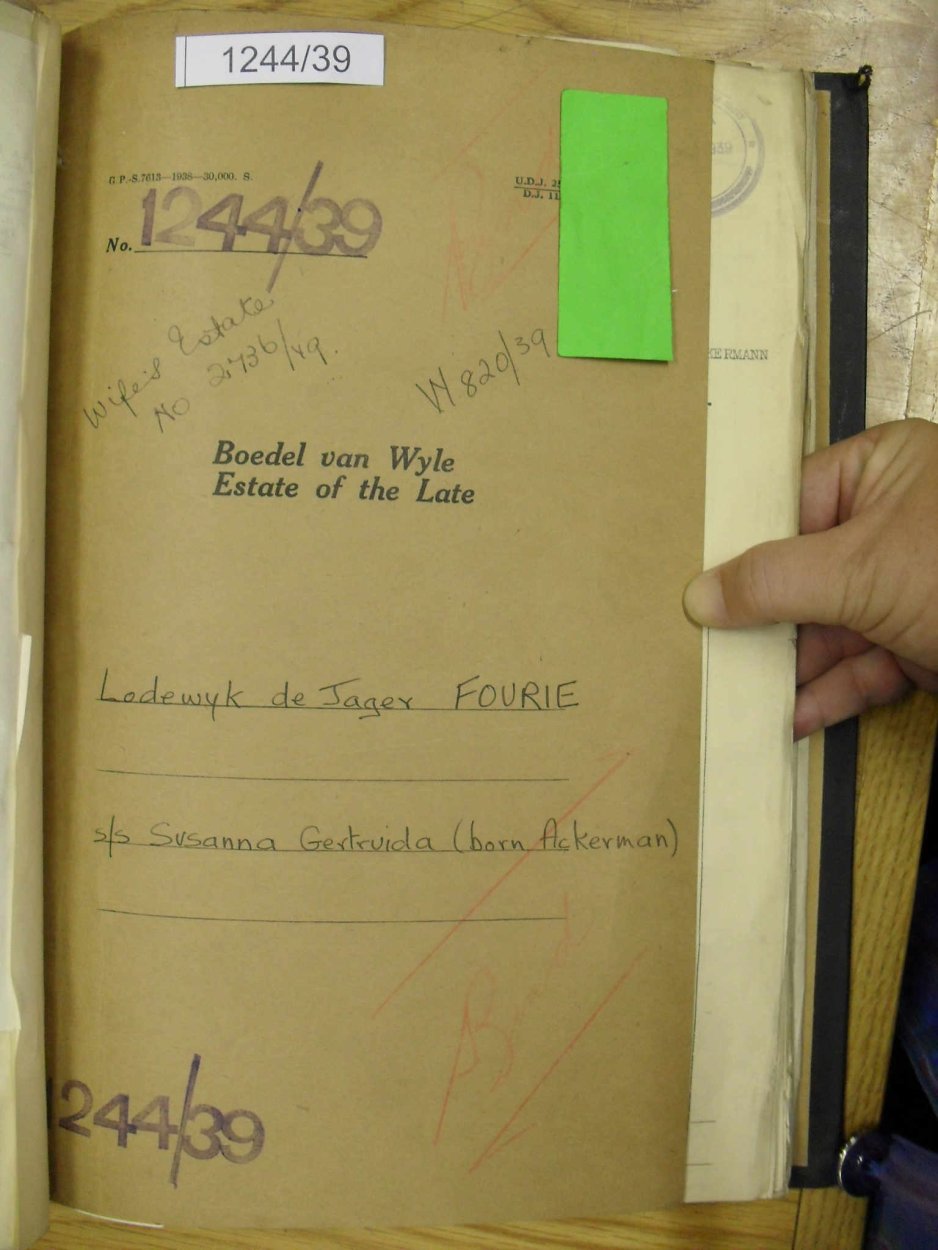 1244/39
G.P.-S.7613—1938—30,000. S.
U.D.J. 2
D.J. 11
No. 1244/39
39
Wife's Estate
No 2736/49.
W 820/39
KERMANN
Boedel van Wyle
Estate of the Late
Lodewyk de Jager FOURIE
s/s Susanna Gertruida (born Ackerman)
1244/39